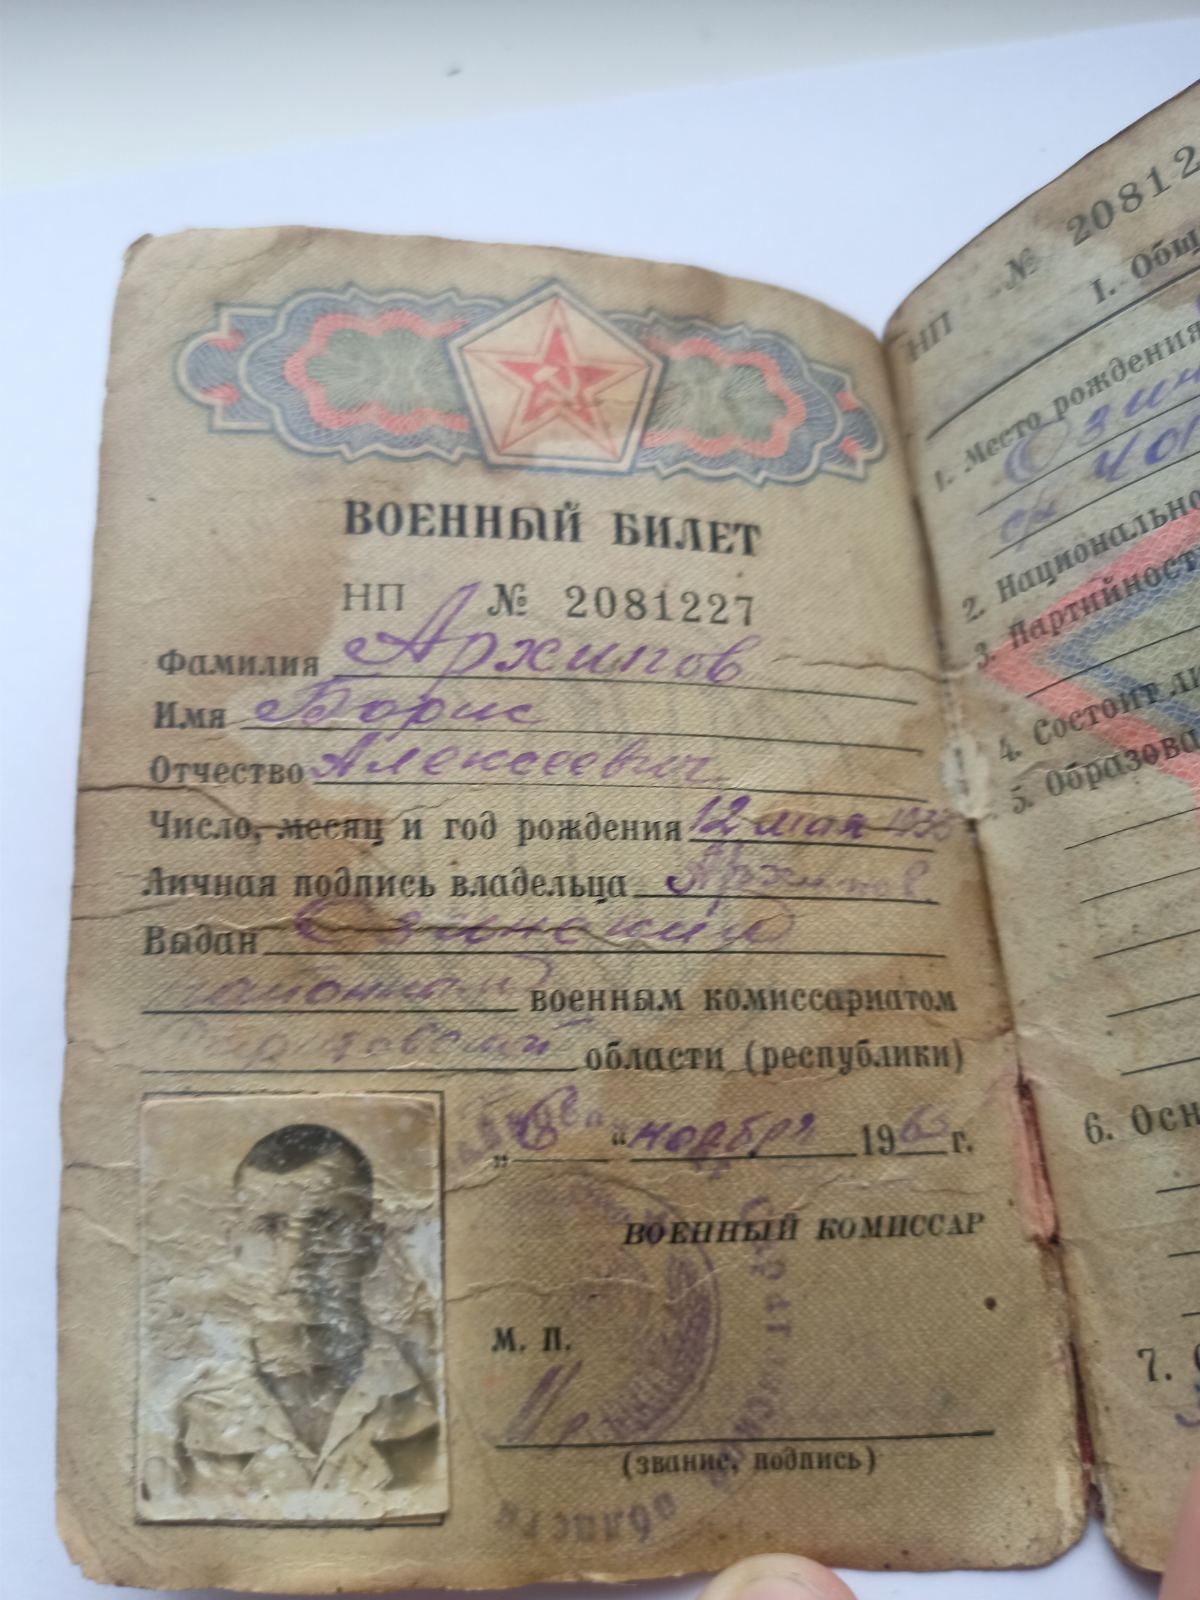 ВОЕННЫЙ БИЛЕТ
НП № 2081227
Фамилия Архипов
Имя Борис
Отчество Алексеевич
Число, месяц и год рождения 12 мая
Личная подпись владельца Архипов
Выдан Озинский
районный военным комиссариатом
Саратовской области (республики)
„6“ ноября 196 г.
ВОЕННЫЙ КОМИССАР
М. П.
(звание, подпись)
области
НП № 20812
1. Общ
1. Место рождения
Озин
2. Национально
3. Партийност
4. Состоит ли
5. Образова
6. Осн
7.